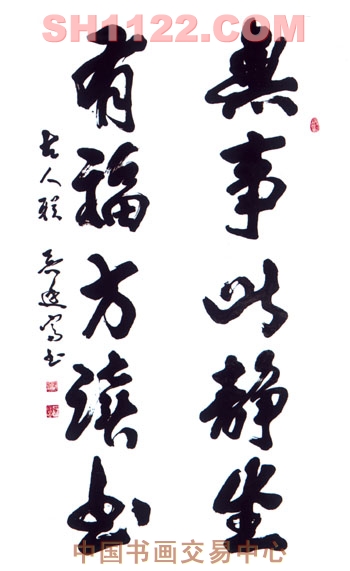 SH1122.COM
無事此靜坐
有福方讀書
古人联
中国书画交易中心